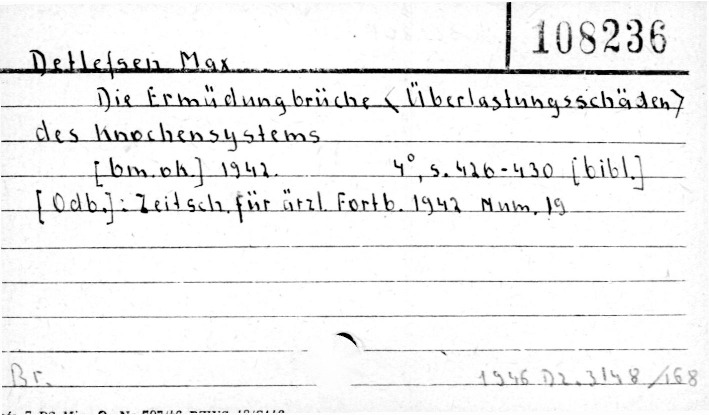 108236
Detlefsen Max
Die Ermüdungbrüche < Überlastungsschäden >
des Knochensystems
[bm. ok.] 1942. 4°, S. 426-430 [bibl.]
[Odb.]: Zeitsch. für ärzl. Fortb. 1942 Num. 19
Br. 1946 D2. 3148/168